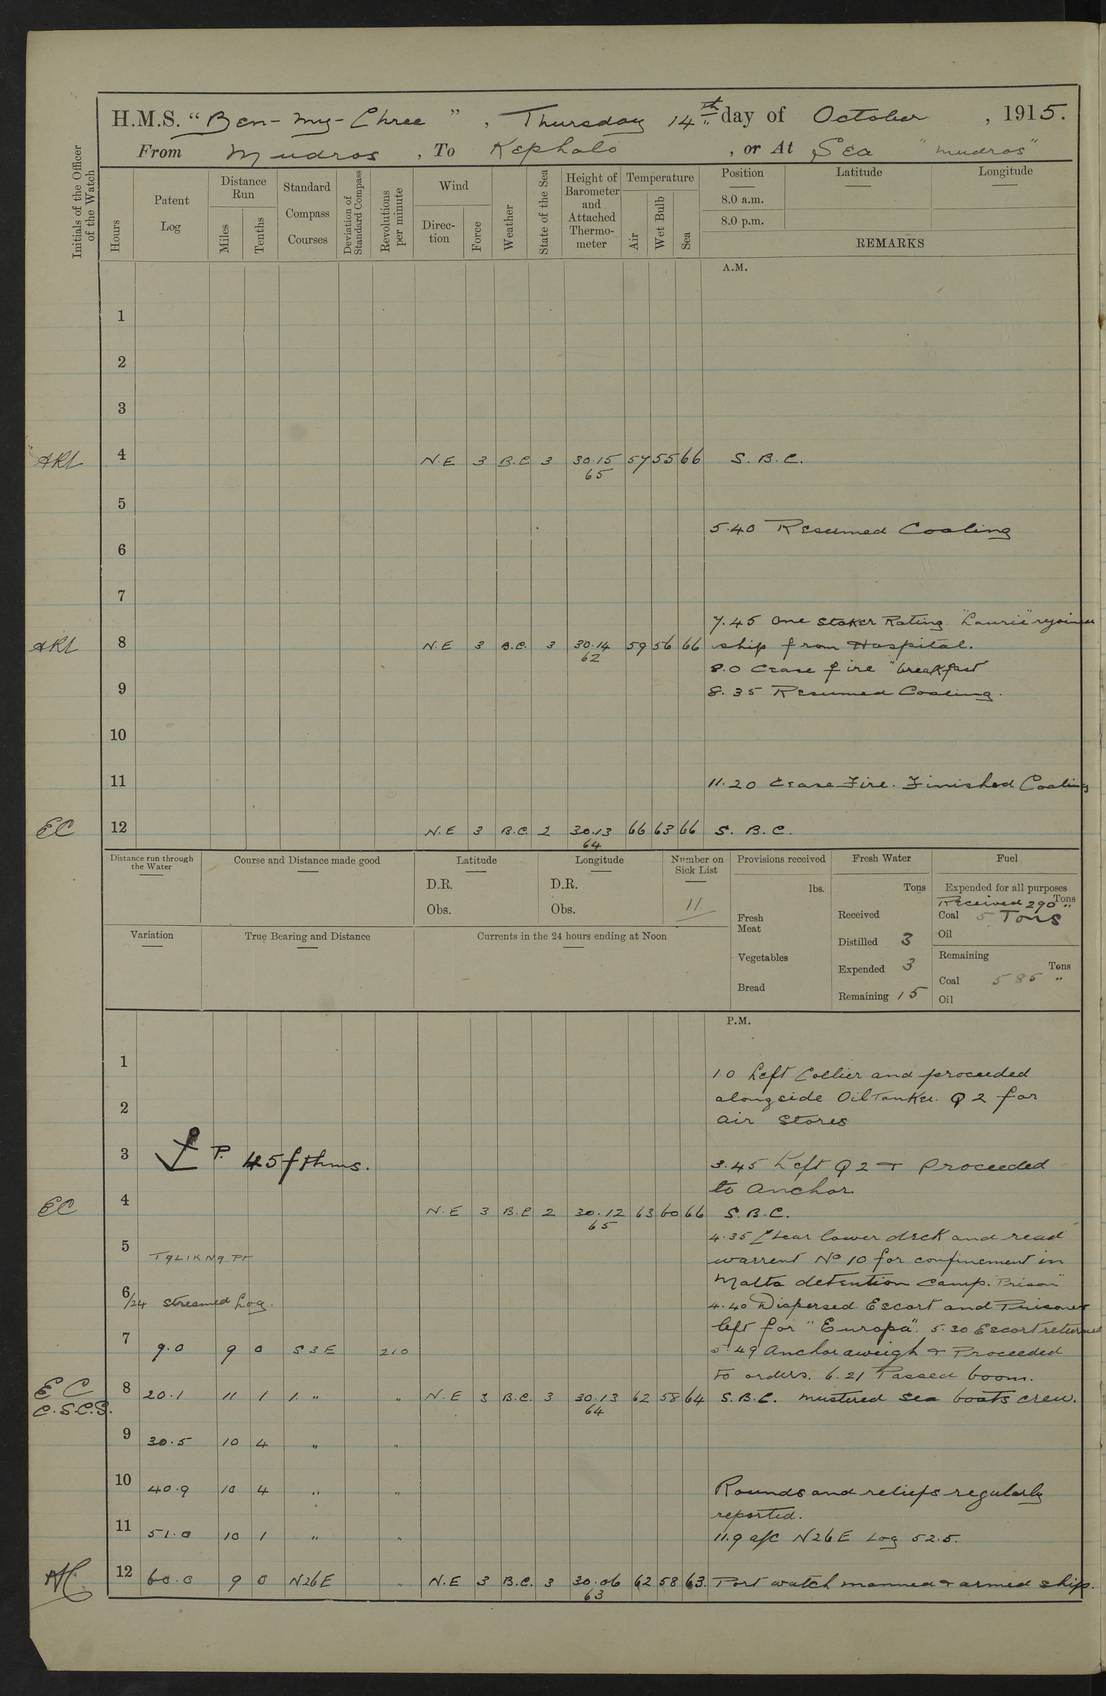 H.M.S. "Ben-my-Chree", Thursday 14th day of October, 1915.
From Mudros, To Kephalo, or At Sea "Mudros"
Initials of the Officer of the Watch
Hours
Patent Log
Distance Run
Miles
Tenths
Standard Compass Courses
Deviation of Standard Compass
Revolutions per minute
Wind
Direction
Force
Weather
State of the Sea
Height of Barometer and Attached Thermometer
Temperature
Air
Wet Bulb
Sea
Position
Latitude
Longitude
8.0 a.m.
8.0 p.m.
REMARKS
A.M.
1
2
3
4 N.E 3 B.C 3 30.15 65 57 55 66 S.B.C.
5
5.40 Resumed Coaling
6
7
7.45 One Stoker Rating "Laurie" rejoined
8 N.E 3 B.C. 3 30.14 62 59 56 66 ship from Hospital.
8.0 Cease fire "breakfast
9 8.35 Resumed Coaling.
10
11 11.20 Cease Fire. Finished Coaling
EC 12 N.E 3 B.C. 2 30.13 64 66 63 66 S.B.C.
Distance run through the Water
Course and Distance made good
Latitude
D.R.
Obs.
Longitude
D.R.
Obs.
Number on Sick List
11
Provisions received
lbs.
Fresh Meat
Vegetables
Bread
Fresh Water
Tons
Received
Distilled 3
Expended 3
Remaining 15
Fuel
Expended for all purposes
Tons
Received 290 "
Coal 5 Tons
Oil
Remaining
Tons
Coal 585 "
Oil
Variation
True Bearing and Distance
Currents in the 24 hours ending at Noon
P.M.
1 1.0 Left Collier and proceeded
2 alongside Oil Tanker Q 2 for
air stores
3 P. 45 fthms. 3.45 Left Q 2 & Proceeded
to anchor
EC 4 N.E 3 B.C 2 30.12 65 63 60 66 S.B.C.
4.35 Clear lower deck and read
5 warrent No 10 for confinement in
Malta detention Camp. "Prison"
6 /24 Streamed Log. 4.40 Dispersed. Escort and Prisoner
left for "Europa". 5.30 Escort returned
7 9.0 9 0 S3E 210 5.49 Anchor aweigh & Proceeded
to orders. 6.21 Passed boom.
EC C.S.C.S. 8 20.1 11 1 " " N.E 3 B.C. 3 30.13 64 62 58 64 S.B.C. mustered sea boats crew.
9 30.5 10 4 " "
10 40.9 10 4 " " Rounds and reliefs regularly
reported.
11 51.0 10 1 " " 11.9 a/c N26E Log 52.5.
12 60.0 9 0 N26E " N.E 3 B.C. 3 30.06 63 62 58 63. Port watch manned & armed ship.